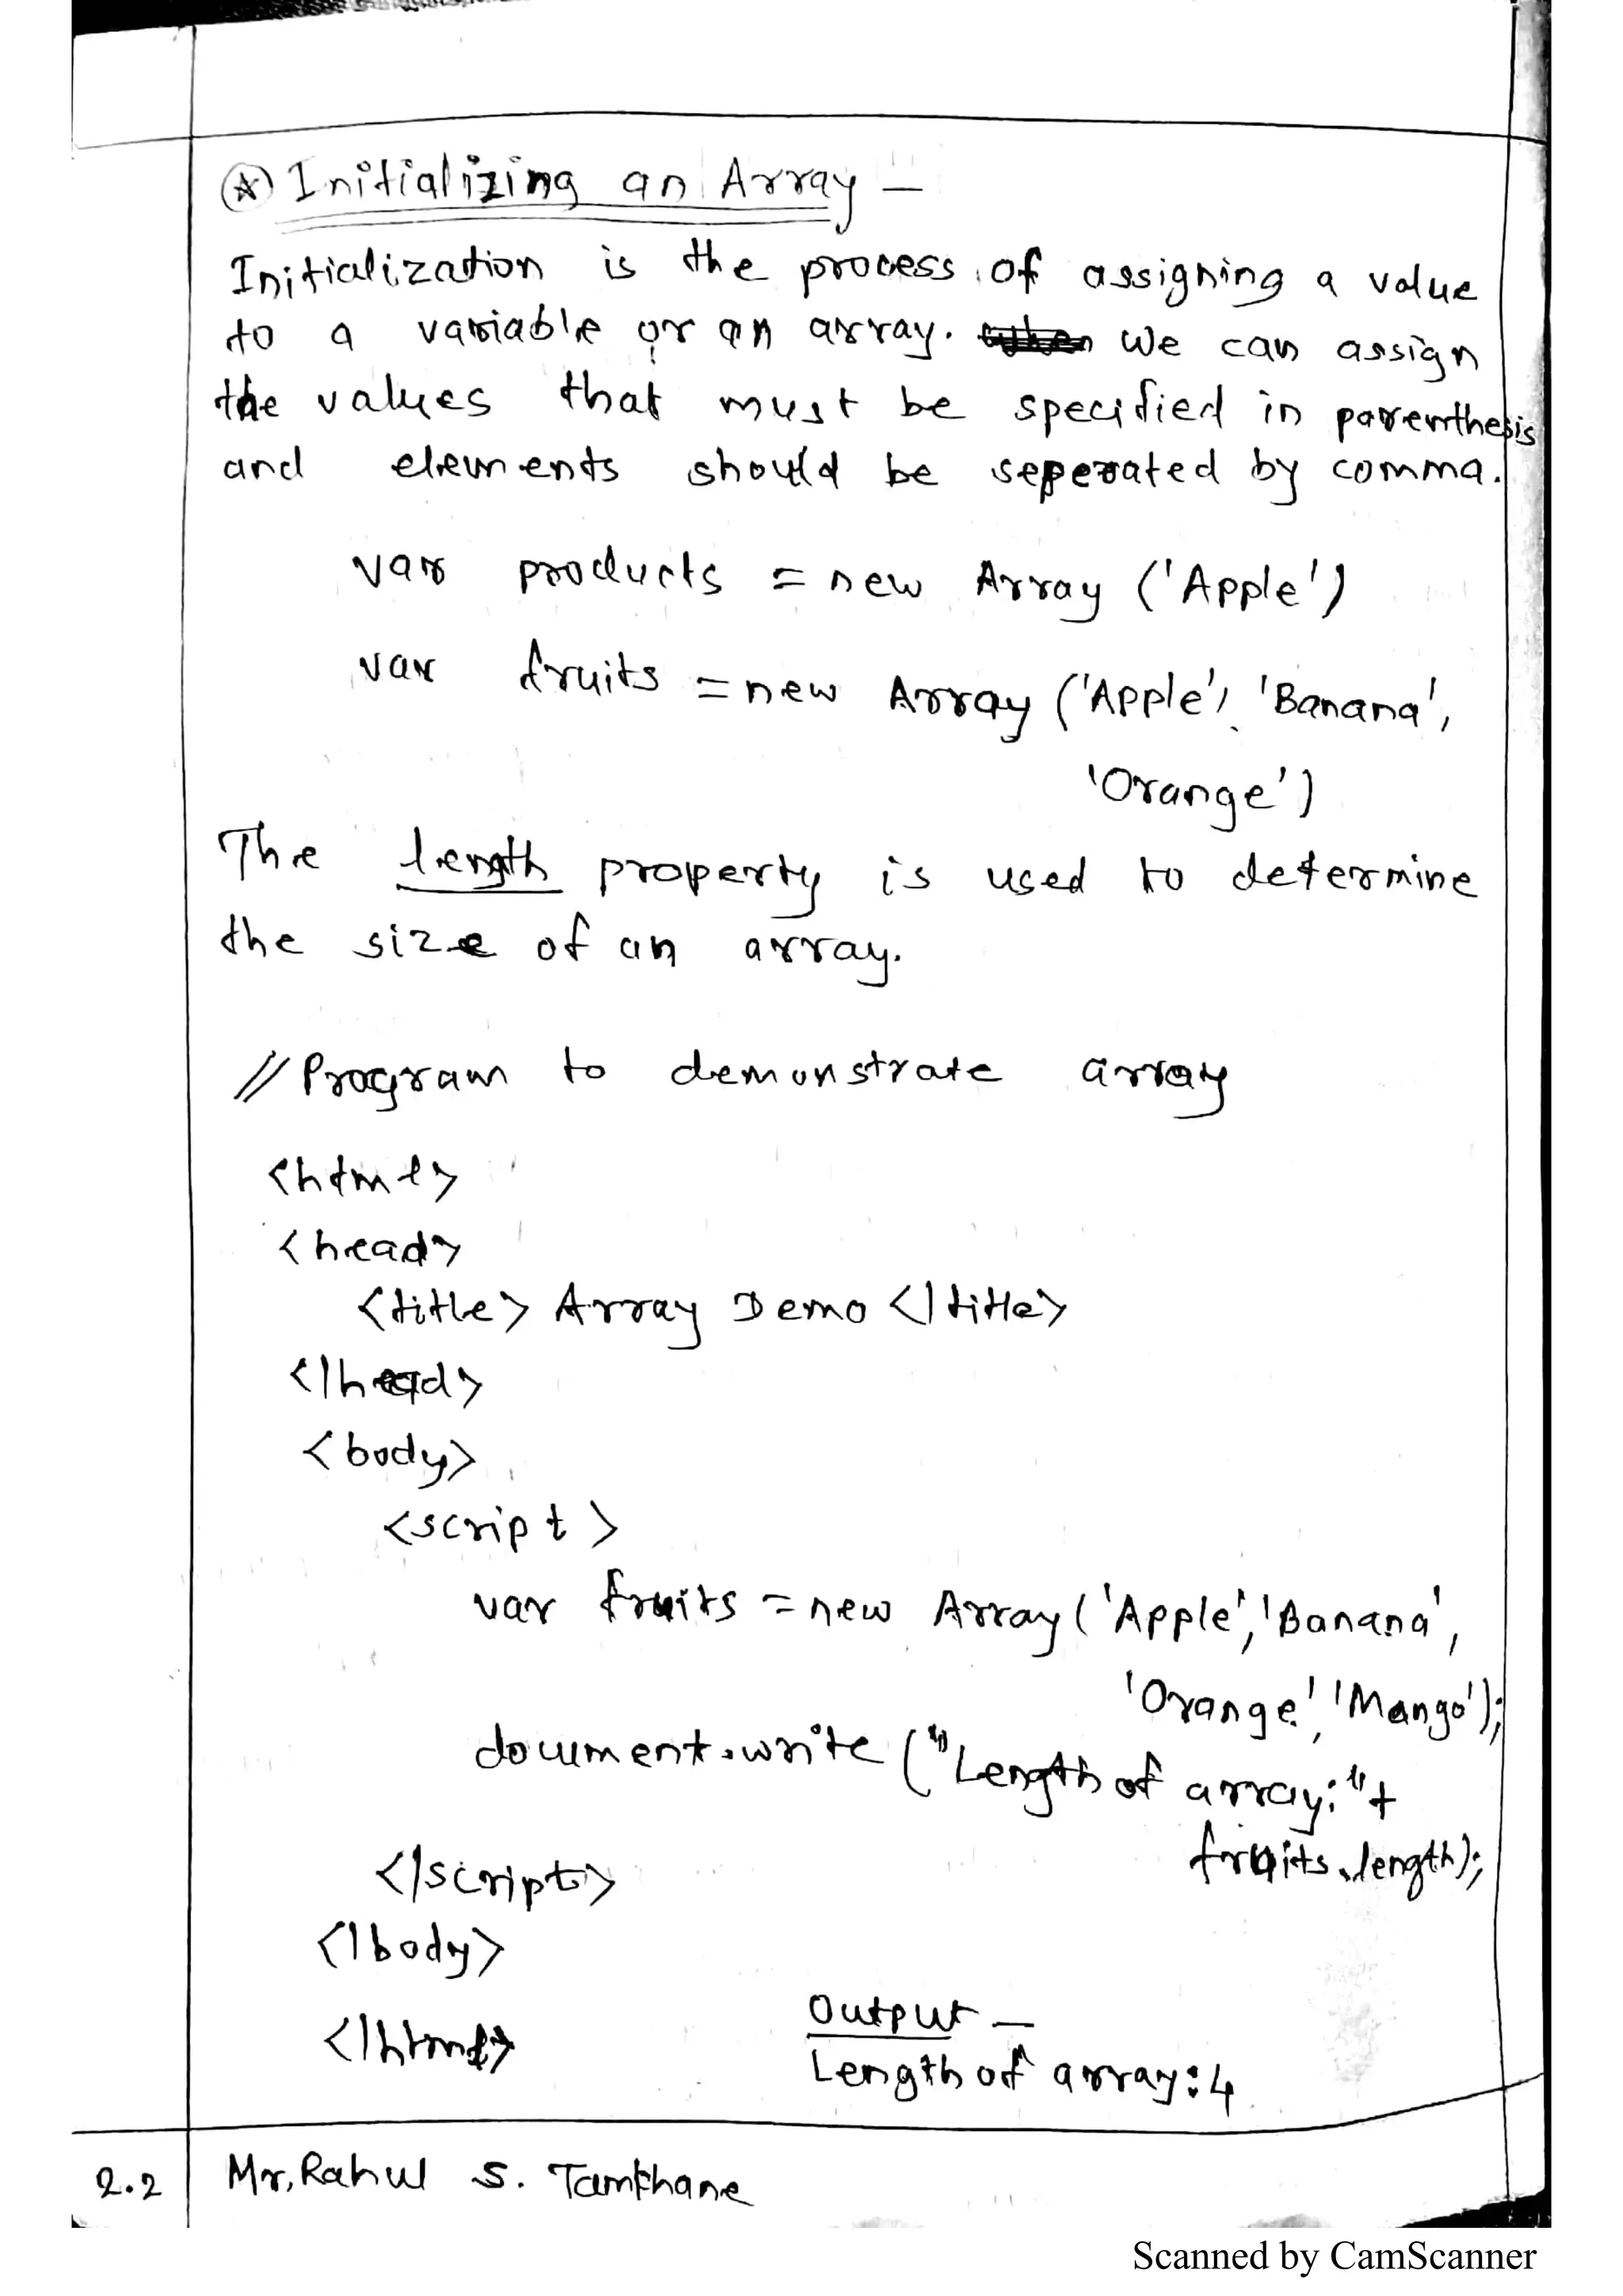 Ⓐ Initializing an Array –
Initialization is the process of assigning a value
to a variable or an array. We can assign
the values that must be specified in parenthesis
and elements should be seperated by comma.
var products = new Array ('Apple')
var fruits = new Array ('Apple', 'Banana',
'Orange')
The length property is used to determine
the size of an array.
// Program to demonstrate array
<html>
<head>
<title> Array Demo </title>
</head>
<body>
<script>
var fruits = new Array ('Apple', 'Banana',
'Orange', 'Mango');
document.write ("Length of array:" +
fruits.length);
</script>
</body>
</html>
Output –
Length of array: 4
2.2 Mr. Rahul S. Tamkhane
Scanned by CamScanner